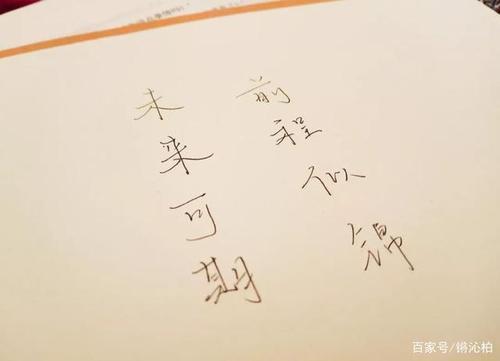 前程似锦
未来可期
百家号/锵沁柏